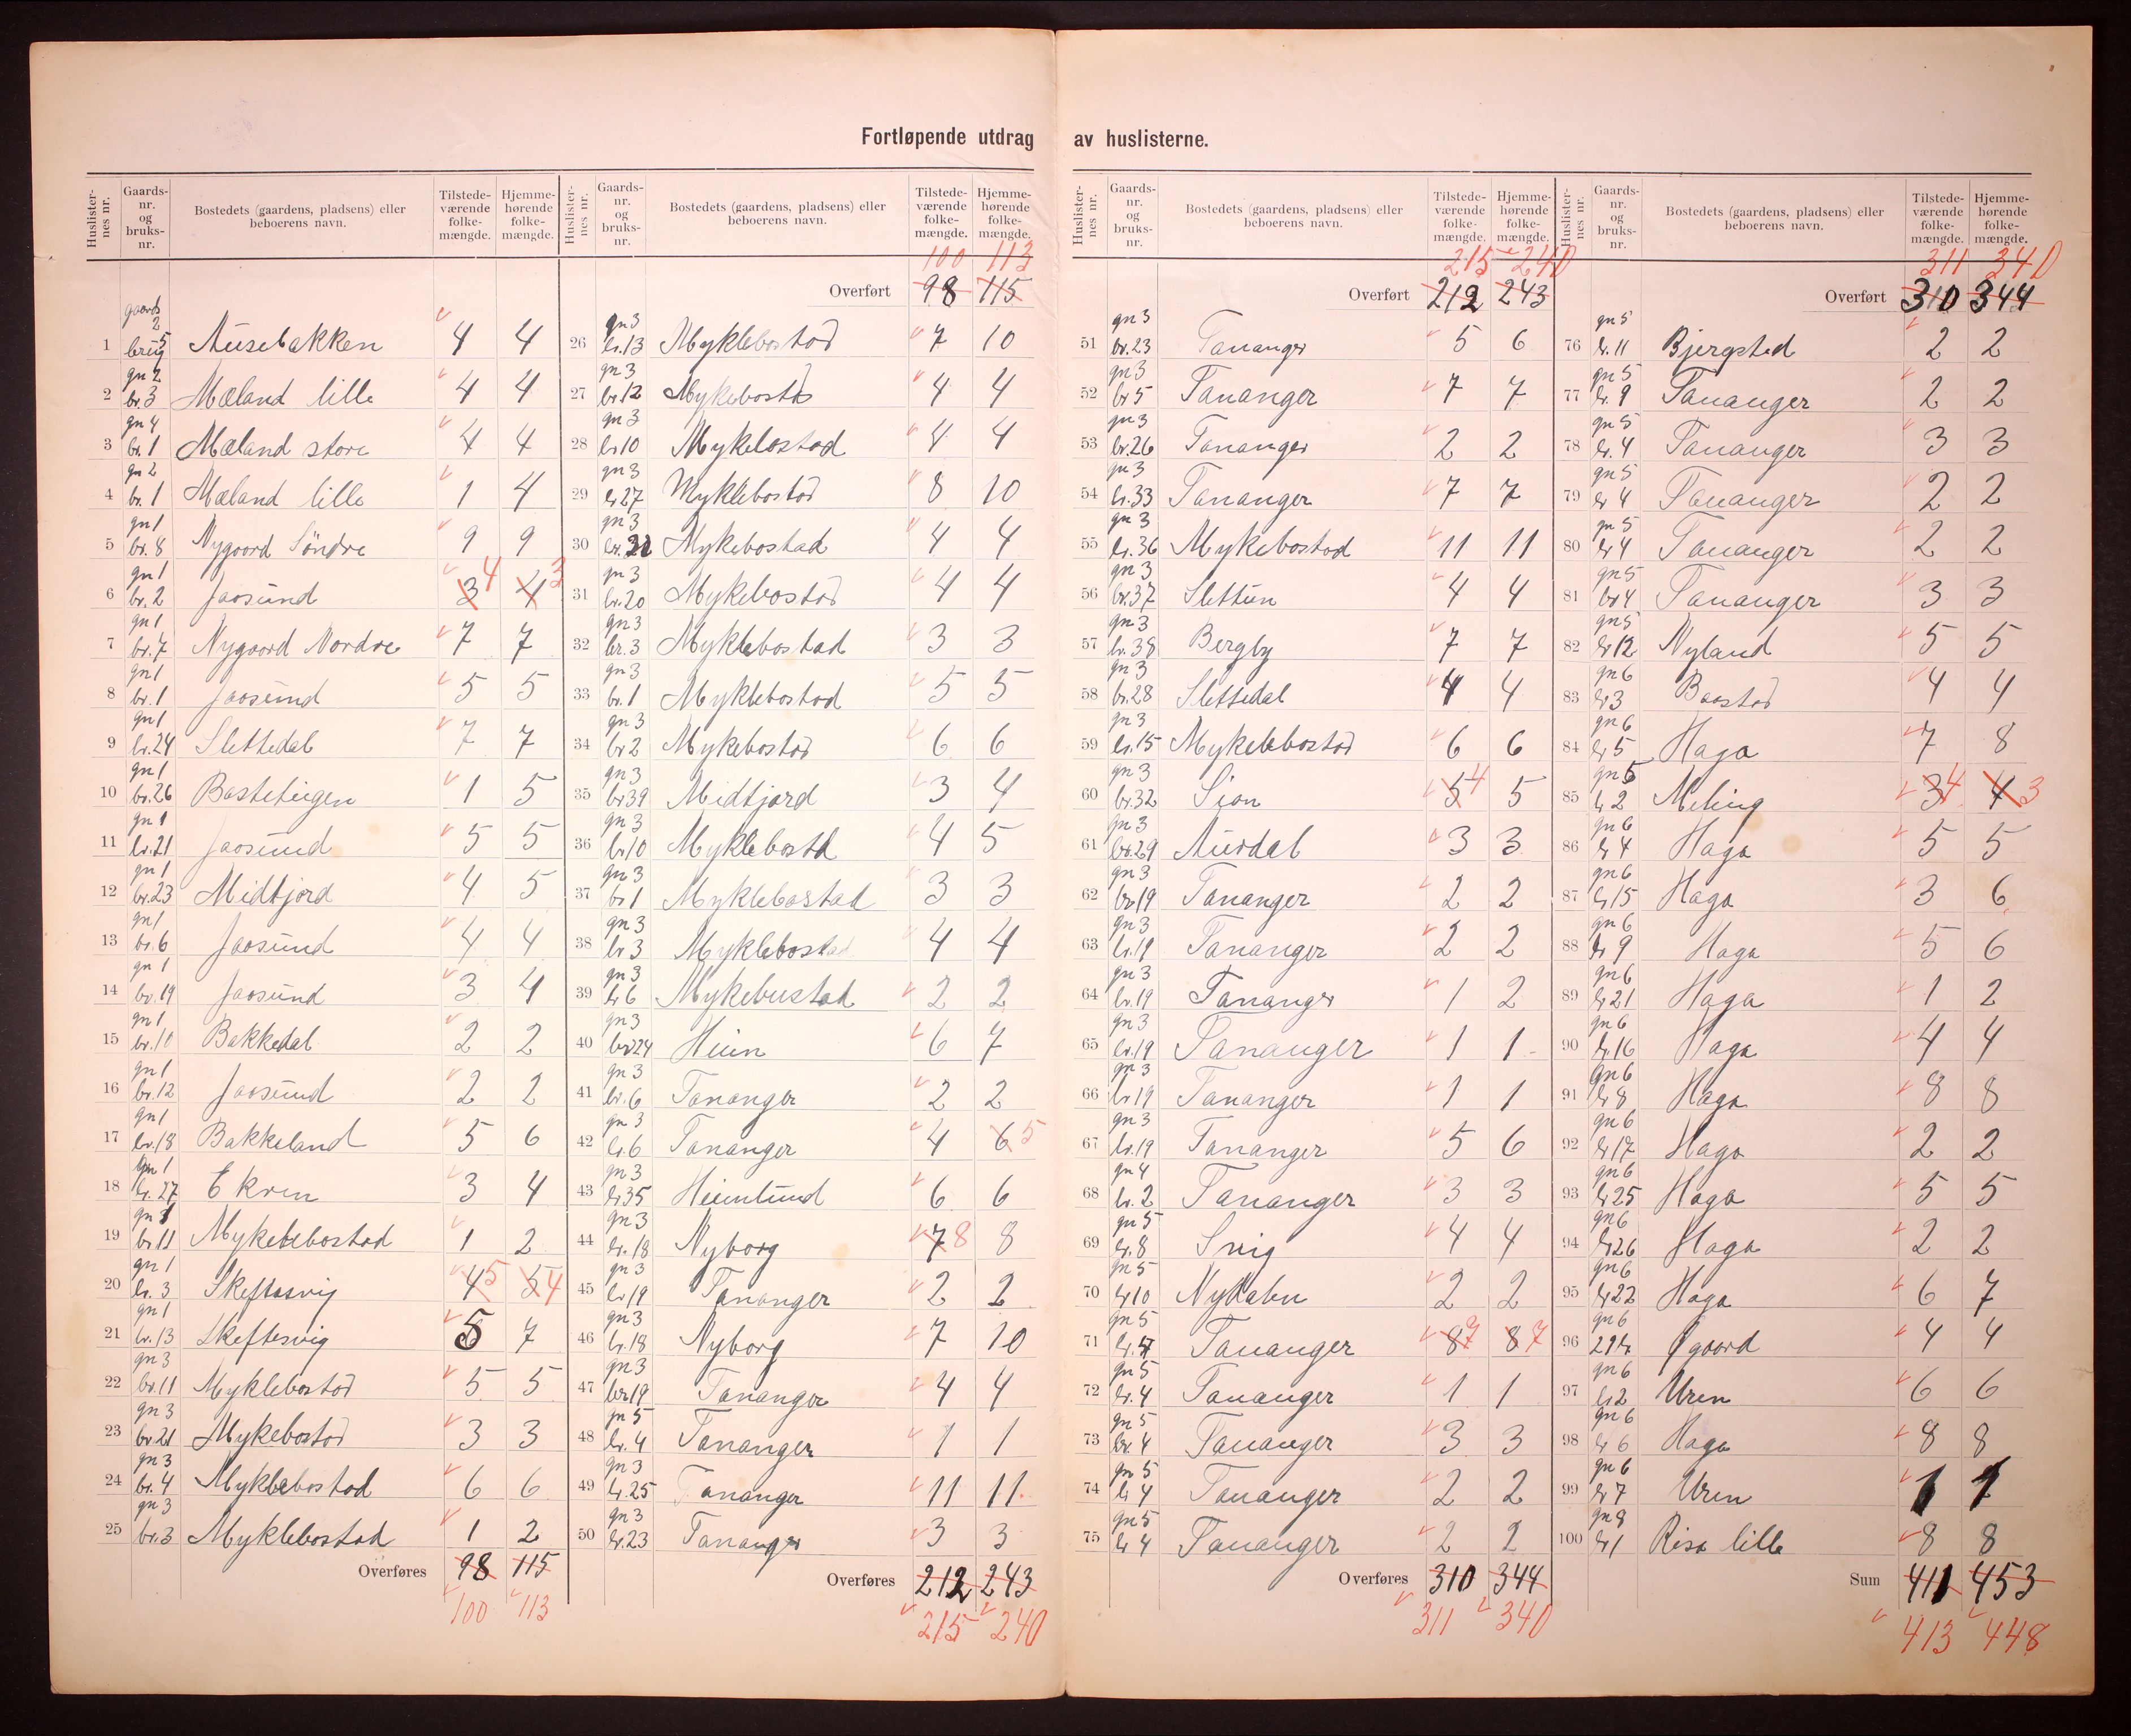 Fortløpende utdrag av huslisterne.
Huslister-nes nr. Gaards-nr. og bruks-nr. Bostedets (gaardens, pladsens) eller beboerens navn. Tilstede-værende folke-mængde. Hjemme-hørende folke-mængde.
1 gaards 2 brug 5 Ausebakken 4 4
2 gn 2 br. 3 Mæland lille 4 4
3 gn 4 br. 1 Mæland store 4 4
4 gn 2 br. 1 Mæland lille 1 4
5 gn 1 br. 8 Nygaard Söndre 9 9
6 gn 1 br. 2 Jaasund 3 4 4 3
7 gn 1 br. 7 Nygaard Nordre 7 7
8 gn 1 br. 1 Jaasund 5 5
9 gn 1 br. 24 Slettedal 7 7
10 gn 1 br. 26 5
11 gn 1 br. 21 Jaasund 5 5
12 gn 1 br. 23 Midtjord 4 5
13 gn 1 br. 6 Jaasund 4 4
14 gn 1 br. 19 Jaasund 3 4
15 gn 1 br. 10 Bakkedal 2 2
16 gn 1 br. 12 Jaasund 2 2
17 gn 1 br. 18 Bakkeland 5 6
18 gn 1 br. 27 Ekren 3 4
19 gn 1 br 11 Mykelebostad 1 2
20 gn 1 br. 3 Skeftesvig 4 5 5 4
21 gn 1 br. 13 Skeftesvig 5 7
22 gn 3 br. 11 Myklebostad 5 5
23 gn 3 br. 21 Mykebostad 3 3
24 gn 3 br. 4 Myklebostad 6 6
25 gn 3 br. 3 Myklebostad 1 2
Overføres 98 115
100 113
Huslister-nes nr. Gaards-nr. og bruks-nr. Bostedets (gaardens, pladsens) eller beboerens navn. Tilstede-værende folke-mængde. Hjemme-hørende folke-mængde.
100 113
Overført 98 115
26 gn 3 br. 13 Myklebostad 7 10
27 gn 3 br. 12 4 4
28 gn 3 br 10 Mykelostad 4 4
29 gn 3 br 27 Myklebostad 8 10
30 gn 3 br. Mykebostad 4 4
31 gn 3 br. 20 Mykebostad 4 4
32 gn 3 br. 3 Myklebostad 3 3
33 gn 3 br. 1 Myklebostad 5 5
34 gn 3 br 2 Mykebostad 6 6
35 gn 3 br 39 Midtjord 3 4
36 gn 3 br 10 Myklebostd 4 5
37 gn 3 br 1 Myklebostad 3 3
38 gn 3 br 3 Myklebostad 4 4
39 gn 3 br 6 Mykebustad 2 2
40 gn 3 br 24 Heim 6 7
41 gn 3 br. 6 Tananger 2 2
42 gn 3 br. 6 Tananger 4 6 5
43 gn 3 br 35 Heimlund 6 6
44 gn 3 br. 18 Nyborg 7 8 8
45 gn 3 br 19 Tananger 2 2
46 gn 3 br. 18 Nyborg 7 10
47 gn 3 br 19 Tananger 4 4
48 gn 5 br. 4 Tananger 1 1
49 gn 3 br. 25 Tananger 11 11
50 gn 3 br. 23 Tananger 3 3
Overføres 212 243
215 240
Huslister-nes nr. Gaards-nr. og bruks-nr. Bostedets (gaardens, pladsens) eller beboerens navn. Tilstede-værende folke-mængde. Hjemme-hørende folke-mængde.
215 240
Overført 212 243
51 gn 3 br. 23 Tananger 5 6
52 gn 3 br 5 Tananger 7 7
53 gn 3 br. 26 Tananger 2 2
54 gn 3 br. 33 Tananger 7 7
55 gn 3 br. 36 Mykebostad 11 11
56 gn 3 br. 37 Slettun 4 4
57 gn 3 br. 38 Bergby 7 7
58 gn 3 br. 28 Slettedal 4 4
59 gn 3 br. 15 Mykelebostad 6 6
60 gn 3 br. 32 Sion 5 4 5
61 gn 3 br. 29 Aurdal 3 3
62 gn 3 br 19 Tananger 2 2
63 gn 3 br. 19 Tananger 2 2
64 gn 3 br. 19 Tananger 1 2
65 gn 3 br. 19 Tananger 1 1
66 gn 3 br 19 Tananger 1 1
67 gn 3 br. 19 Tananger 5 6
68 gn 4 br. 2 Tananger 3 3
69 gn 5 br. 8 Svig 4 4
70 gn 5 br 10 2 2
71 gn 5 br. Tananger 8 7 8 7
72 gn 5 br. 4 Tananger 1 1
73 gn 5 br. 4 Tananger 3 3
74 gn 5 br 4 Tananger 2 2
75 gn 5 br 4 Tananger 2 2
Overføres 310 344
311 340
Huslister-nes nr. Gaards-nr. og bruks-nr. Bostedets (gaardens, pladsens) eller beboerens navn. Tilstede-værende folke-mængde. Hjemme-hørende folke-mængde.
311 340
Overført 310 344
76 gn 5 br. 11 Bjergsted 2 2
77 gn 5 br. 9 Tananger 2 2
78 gn 5 br. 4 Tananger 3 3
79 gn 5 br 4 Tananger 2 2
80 gn 5 br 4 Tananger 2 2
81 gn 5 br 4 Tananger 3 3
82 gn 5 br 12 Nyland 5 5
83 gn 6 br 3 Baastad 4 4
84 gn 6 br 5 Haga 7 8
85 gn br 2 Meling 3 4 4 3
86 gn 6 br 4 Haga 5 5
87 gn 6 br 15 Haga 3 6
88 gn 6 br 9 Haga 5 6
89 gn 6 br 21 Haga 1 2
90 gn 6 br. 16 Haga 4 4
91 gn 6 br 8 Haga 8 8
92 gn 6 br 17 Haga 2 2
93 gn 6 br 25 Haga 5 5
94 gn 6 br 26 Haga 2 2
95 gn 6 br 22 Haga 6 7
96 gn 6 Øgaard 4 4
97 gn 6 br 2 Uren 6 6
98 gn 6 br 6 Haga 8 8
99 gn 6 br 7 Uren 1 1
100 gn 8 br 1 Risa lille 8 8
Sum 411 453
413 448